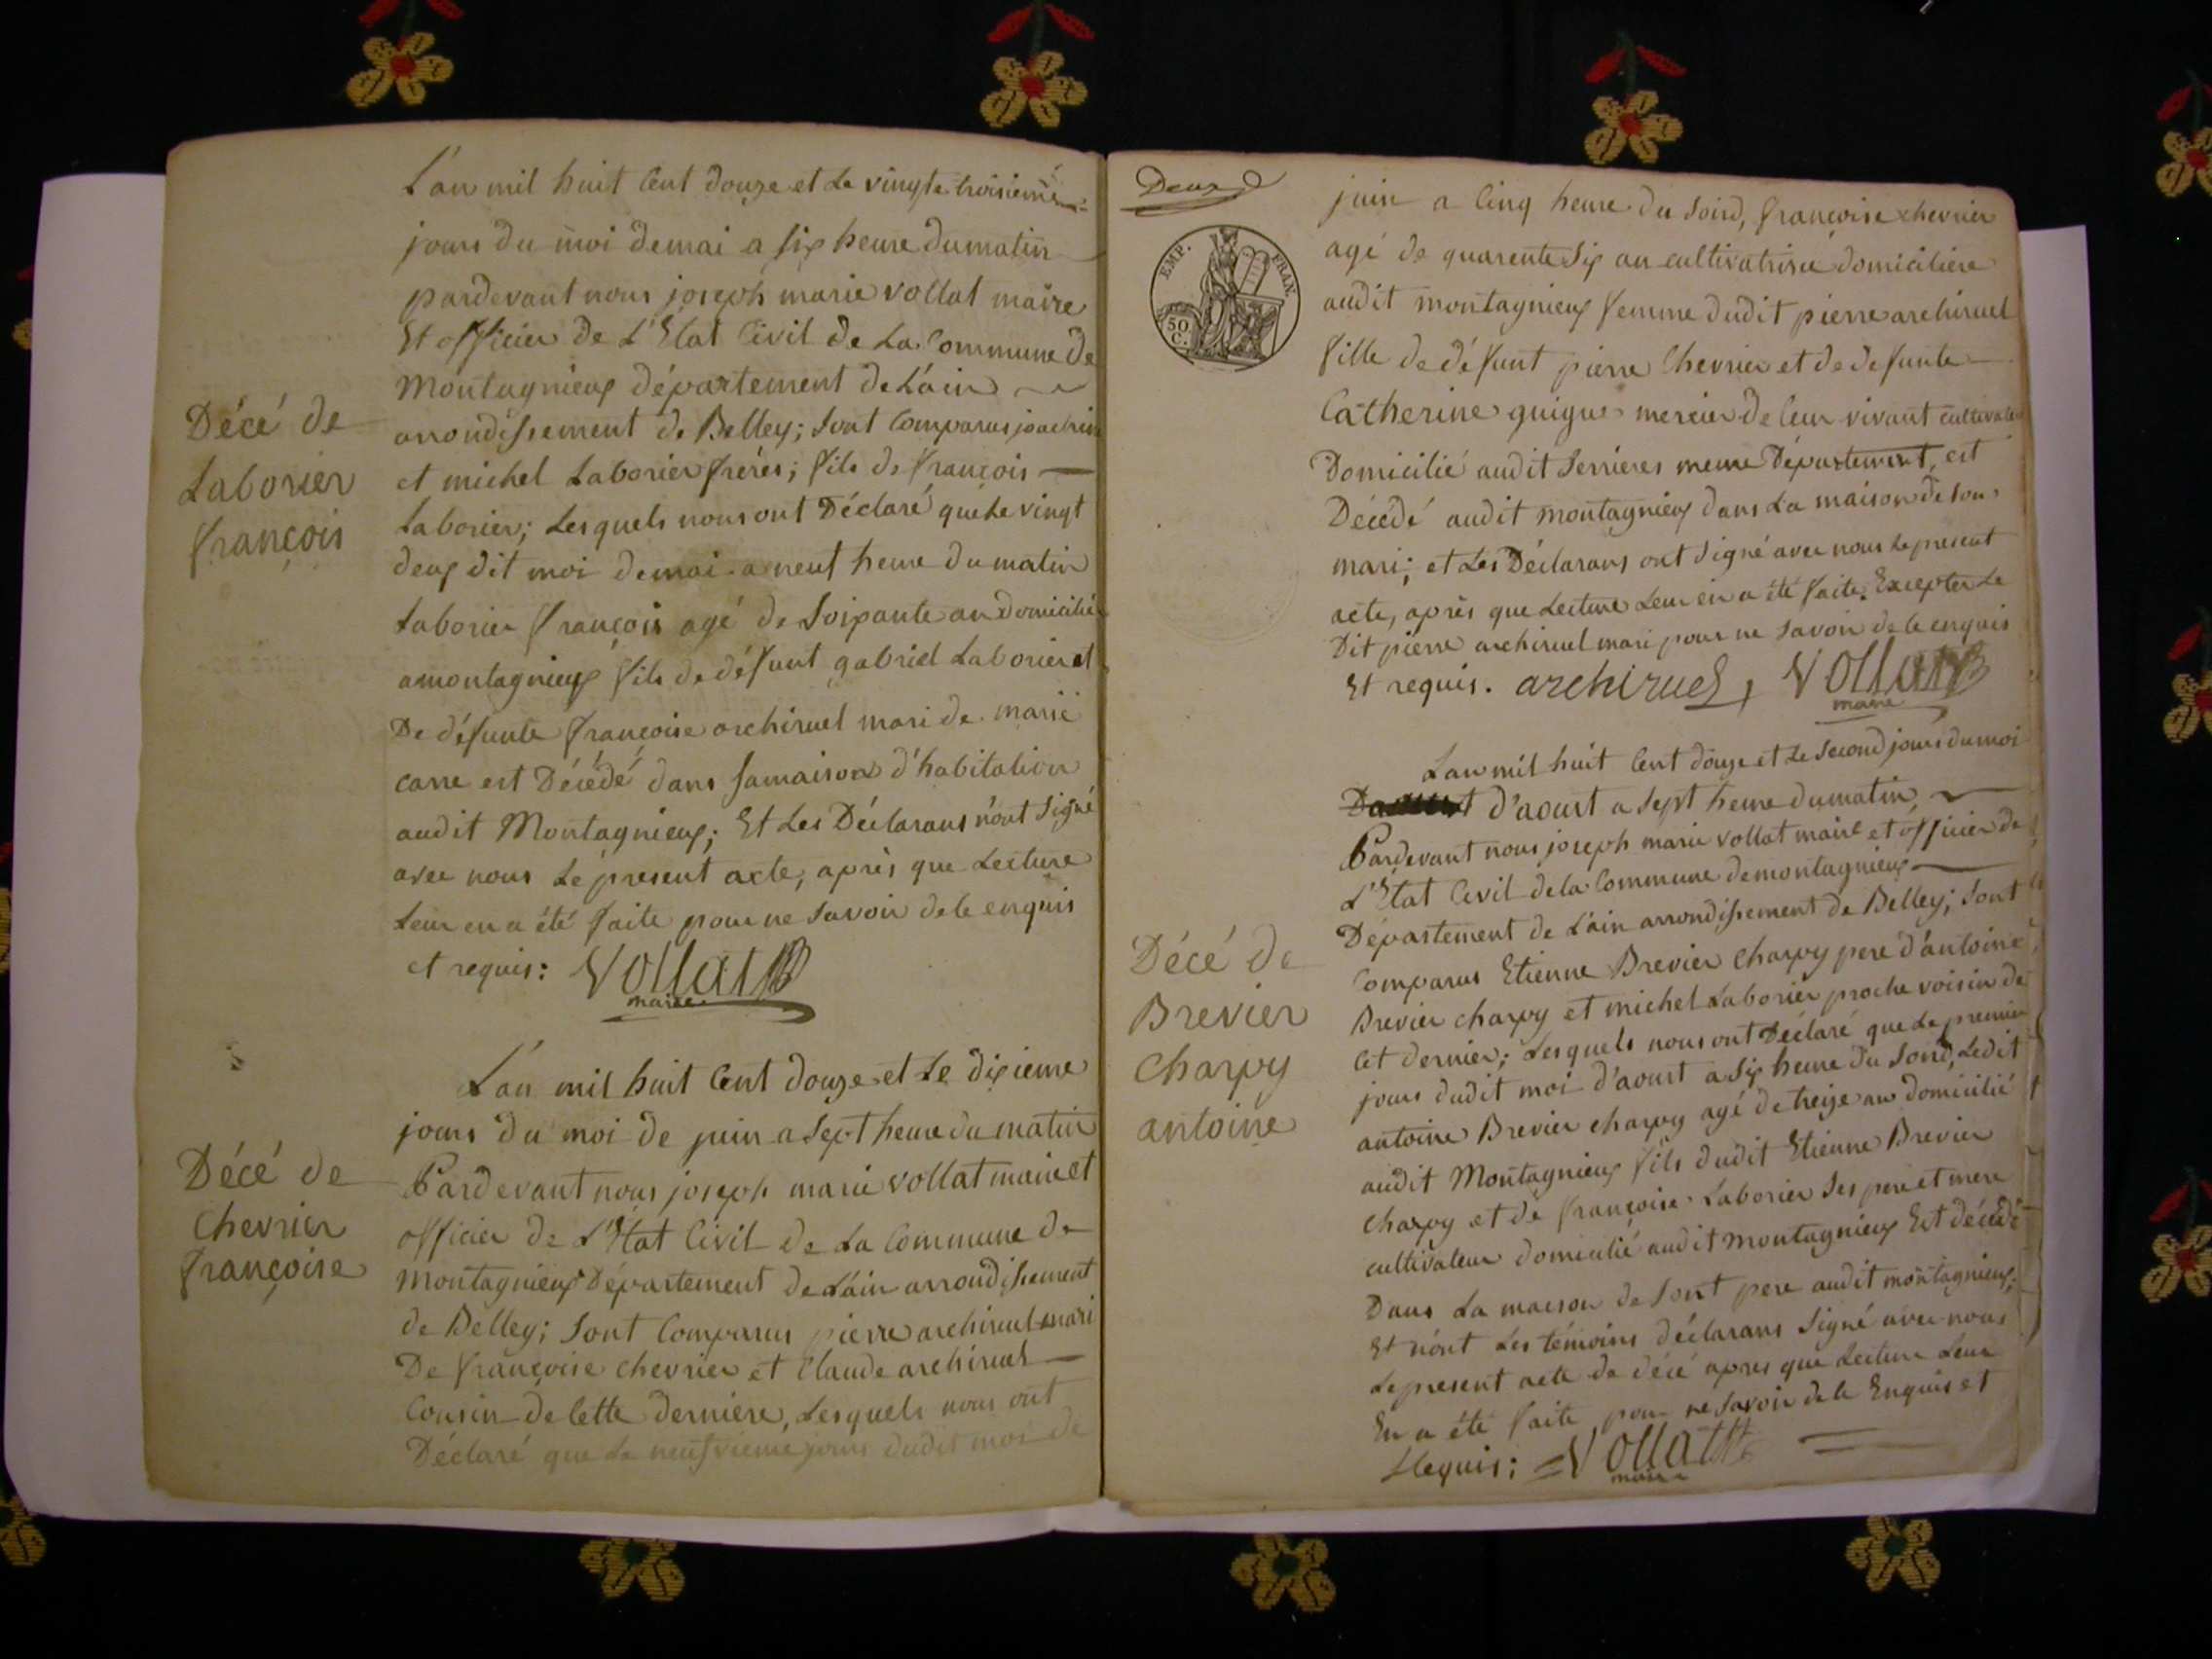 L'an mil huit Cent douze et Le vingte troisieme
jours du moi demai a six heure dumatin
pardevant nous joseph marie vollat maire
Et officier de L'Etat Civil de La Commune de
Montagnieux département deLáin
arrondissement de Belley; sont Comparus joachim
et michel Laborier fréres; fils de françois
Laborier; Lesquels nous ont Déclaré que Le vingt
deux dit moi demai a neuf heure du matin
Laborier françois agé de soixante an domicilié
amontagnieux fils de défunt gabriel Laborier et
De défunte françoise archiruel mari de marie
carre est Décédé dans samaison d'habitation
audit Montagnieux; Et Les Déclarans n'ont signé
avec nous Le present acte, aprés que Lecture
Leur en a été faite pour ne savoir de le enquis
et requis: Vollat
maire
Décé de
Laborier
françois
L'an mil huit Cent douze et Le dixieme
jours du moi de juin a sept heure du matin
Pardevant nous joseph marie vollat maire et
officier de L'Etat Civil de La Commune de
montagnieux Département de Láin arrondissement
de Belley; sont Comparus pierre archiruel mari
De françoise chevrier et Claude archiruel
Cousin de Cette derniere, Lesquels nous ont
Déclaré que Le neufvieme jours dudit moi de
Décé de
Chevrier
françoise
Deux
EMP. FRAN.
50 C.
juin a Cinq heure du soird, françoise chevrier
agé de quarente six an cultivatrise domiciliere
audit montagnieux femme dudit pierre archiruel
fille de défunt pierre Chevrier et de defunte
Catherine guigue mercier de leur vivant cultivateur
Domicilié audit serrieres meme Département, est
Décédé audit montagnieux dans La maison de son
mari; et Les Déclarans ont signé avec nous Le present
acte, aprés que Lecture Leur en a été faite. Excepter Le
Dit pierre archiruel mari pour ne savoir de le enquis
Et requis. archiruel, Vollat
maire
L'an mil huit Cent douze et Le second jours du moi
d'aoust a sept heure dumatin,
Pardevant nous joseph marie vollat maire et officier de
L'Etat Civil dela Commune demontagnieux
Département de Láin arrondissement de Belley; sont
Comparus Etienne Brevier charpy pere d'antoine
Brevier charpy et michel Laborier proche voisin de
Cet dernier; Lesquels nous ont Déclaré que Le premier
jours dudit moi d'aoust a six heure du soird, Ledit
antoine Brevier charpy agé de treize an domicilié
audit Montagnieux fils dudit Etienne Brevier
charpy et de françoise Laborier ses pere et mere
cultivateur domicilié audit montagnieux Est décédé
Dans La maison de sont pere audit montagnieux;
Et n'ont Les témoins déclarans signé avec nous
Le present acte de décé apres que Lecture Leur
En a été faite pour ne savoir de le Enquis et
Requis; Vollat
maire
Décé de
Brevier
Charpy
antoine